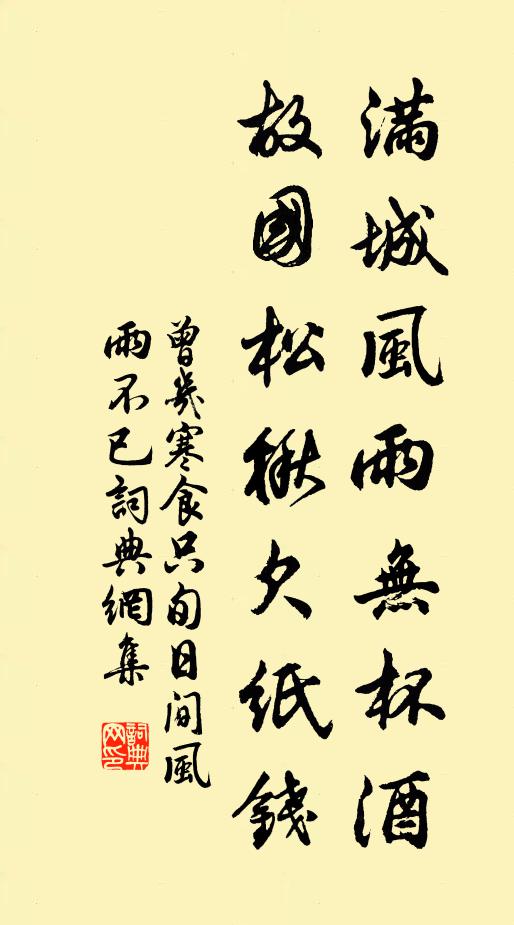 滿城風雨無杯酒
故國松楸欠紙錢
曾幾寒食只旬日間風
雨不已詞典網集
詞典網印